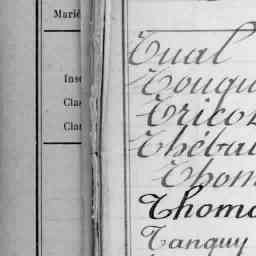 Marié
Insc
Clas
Clas
Tual
Touqu
Tricot
Thébau
Thom
Thoma
Tanguy